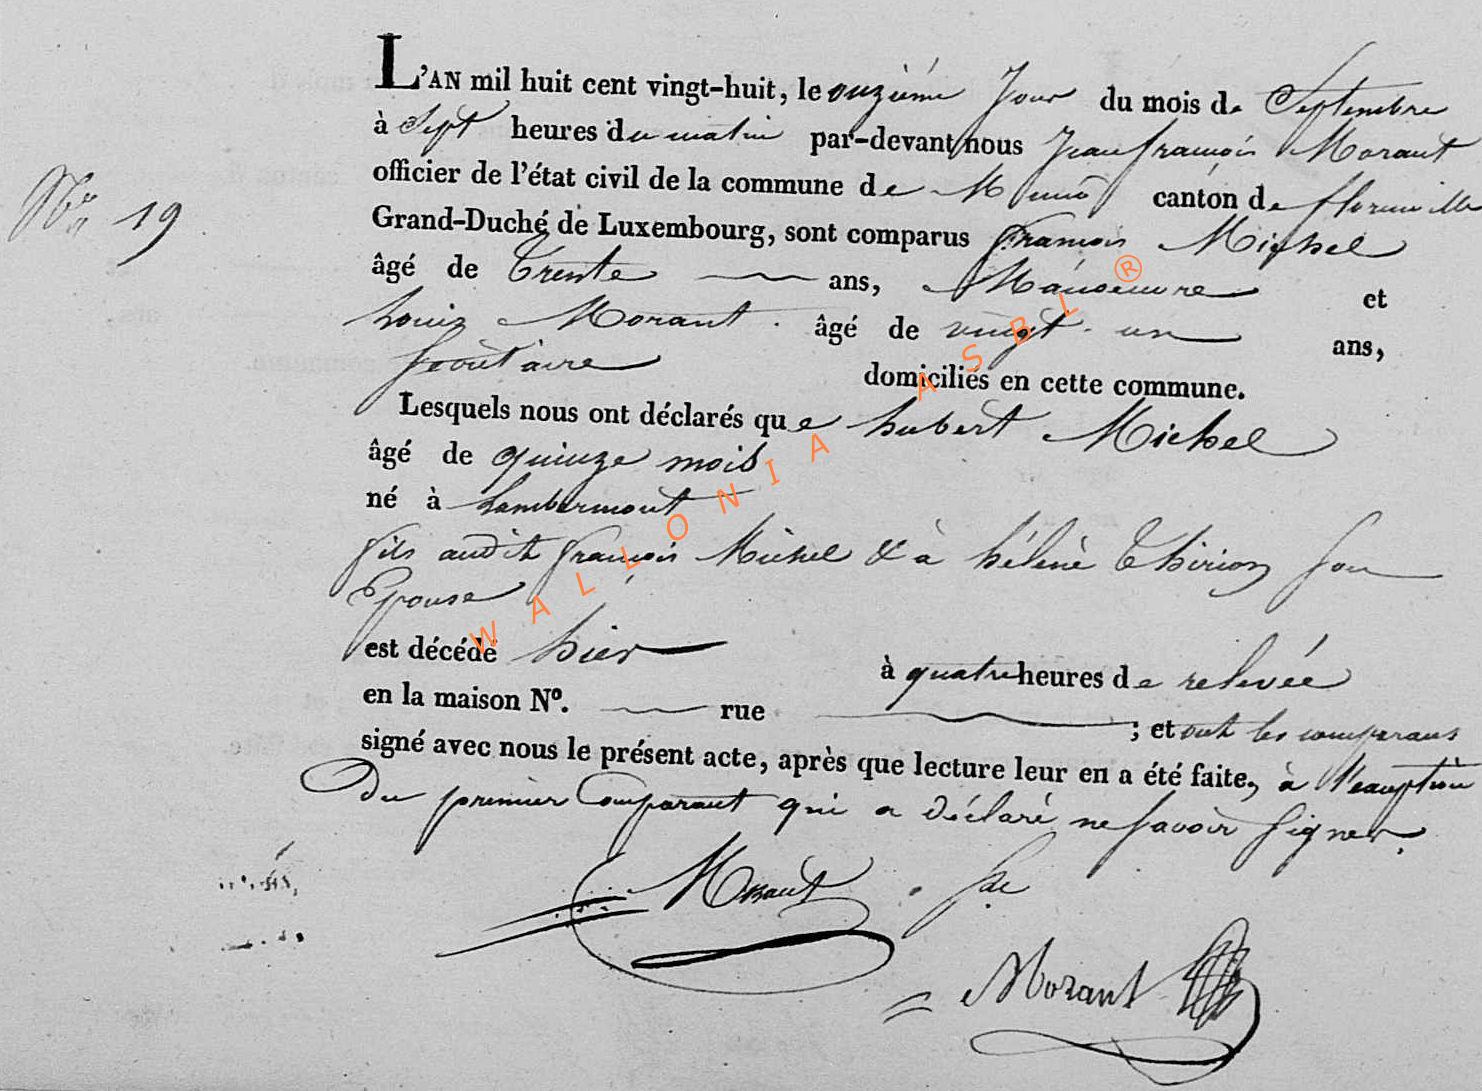 L'AN mil huit cent vingt-huit, le onziéme Jour du mois de Septembre
à Sept heures du matin par-devant nous Jean françois Morant
officier de l'état civil de la commune de Muno canton de florenville
Nº 19
Grand-Duché de Luxembourg, sont comparus françois Michel
âgé de Trente ans, Manoeuvre et
Louis Morant âgé de vingt-un ans,
Secrétaire domiciliés en cette commune.
Lesquels nous ont déclarés que hubert Michel
âgé de quinze mois
né à Lambermont
fils audit françois Michel & à hélène Thirion Son
Epouse
est décédé hier à quatre heures de relevée
en la maison Nº. rue ; et ont les comparans
signé avec nous le présent acte, après que lecture leur en a été faite, à l'exception
Du premier Comparant qui a déclaré ne Savoir Signer.
Morant
Morant
WALLONIA ASBL ®